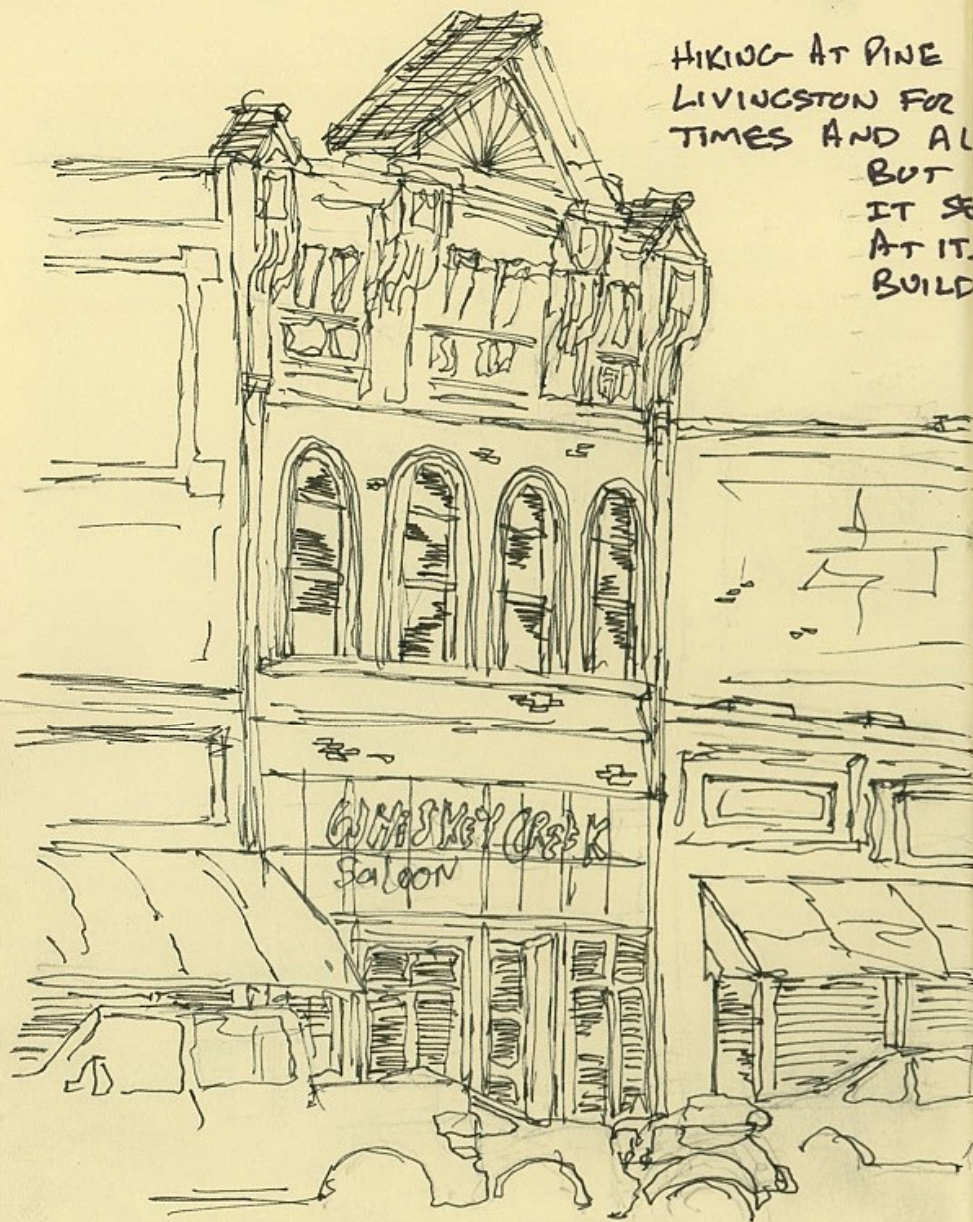 HIKING AT PINE
LIVINGSTON FOR
TIMES AND AL
BUT
IT SE
AT IT
BUILD
WHISKEY CREEK
SALOON